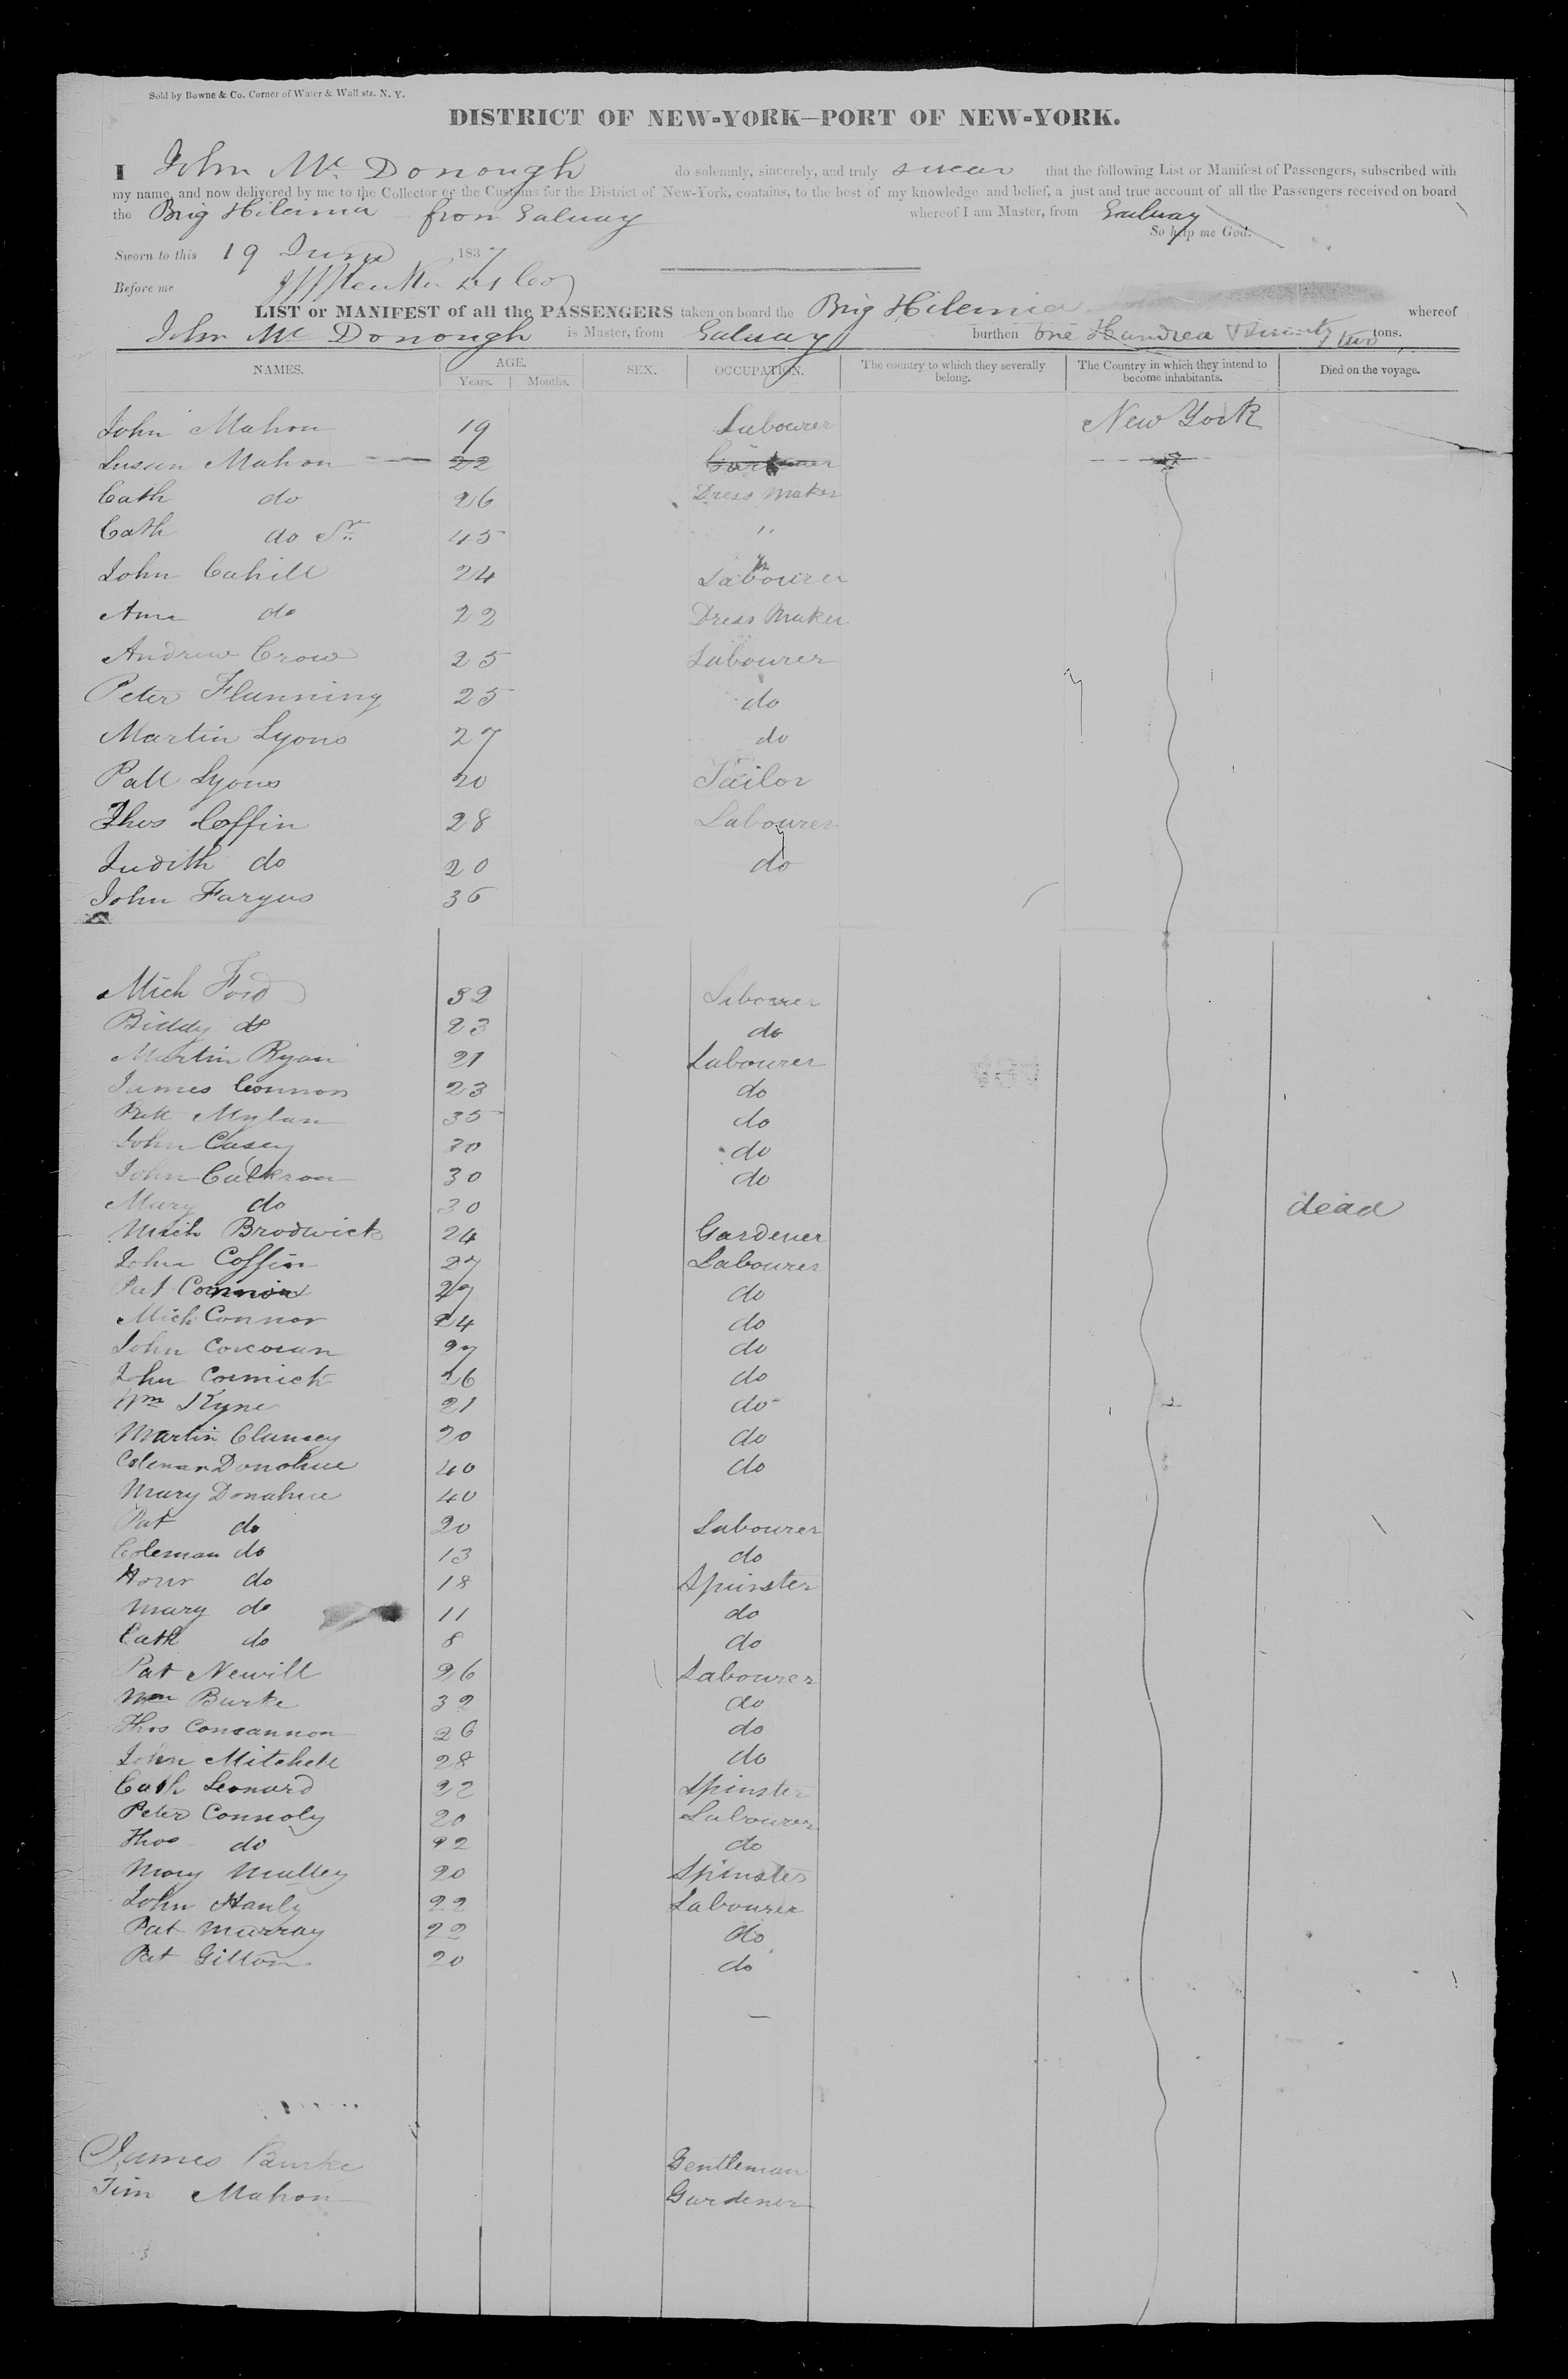 Sold by Bowne & Co. Corner of Water & Wall sts. N. Y.
DISTRICT OF NEW-YORK—PORT OF NEW-YORK.
I John Mc Donough do solemnly, sincerely, and truly swear that the following List or Manifest of Passengers, subscribed with
my name, and now delivered by me to the Collector of the Customs for the District of New-York, contains, to the best of my knowledge and belief, a just and true account of all the Passengers received on board
the Brig Hibernia from Galway whereof I am Master, from Galway
So help me God.
Sworn to this 19 June 1837
Before me
LIST or MANIFEST of all the PASSENGERS taken on board the Brig Hibernia whereof
John Mc Donough is Master, from Galway burthen one Hundred & twenty two tons.
NAMES. AGE. SEX. OCCUPATION. The country to which they severally belong. The Country in which they intend to become inhabitants. Died on the voyage.
Years. Months.
John Mahon 19 Labourer New York
Susan Mahon 22
Cath do 26 Dress Maker
Cath do Sr 45 "
John Cahill 24 Labourer
Ann do 22 Dress Maker
Andrew Crow 25 Labourer
Peter Flanning 25 do
Martin Lyons 27 do
Patt Lyons 20 Tailor
Thos Coffin 28 Labourer
Judith do 20 do
John Fargus 36
Mich Ford 32 Labourer
Biddy do 23 do
Martin Ryan 21 Labourer
James Connon 23 do
Patt Mylan 35 do
John Casey 30 do
John Calkron 30 do
Mary do 30 dead
Mich Brodwick 24 Gardener
John Coffin 27 Labourer
Pat 27 do
Mich Connor 24 do
John Corcoran 27 do
John Cormick 26 do
Wm Kyne 21 do
Martin Clancey 20 do
Coleman Donohue 40 do
Mary Donahue 40
Pat do 20 Labourer
Coleman do 13 do
Honr do 18 Spinster
Mary do 11 do
Cath do 8 do
Pat Newill 26 Labourer
Wm Burke 32 do
Thos Concannon 26 do
John Mitchell 28 do
Cath Leonard 22 Spinster
Peter Connoly 20 Labourer
Thos do 22 do
Mary Mulley 20 Spinster
John Hanly 22 Labourer
Pat Murray 22 do
Pat Gillon 20 do
James Burke Gentleman
Tim Mahon Gardener